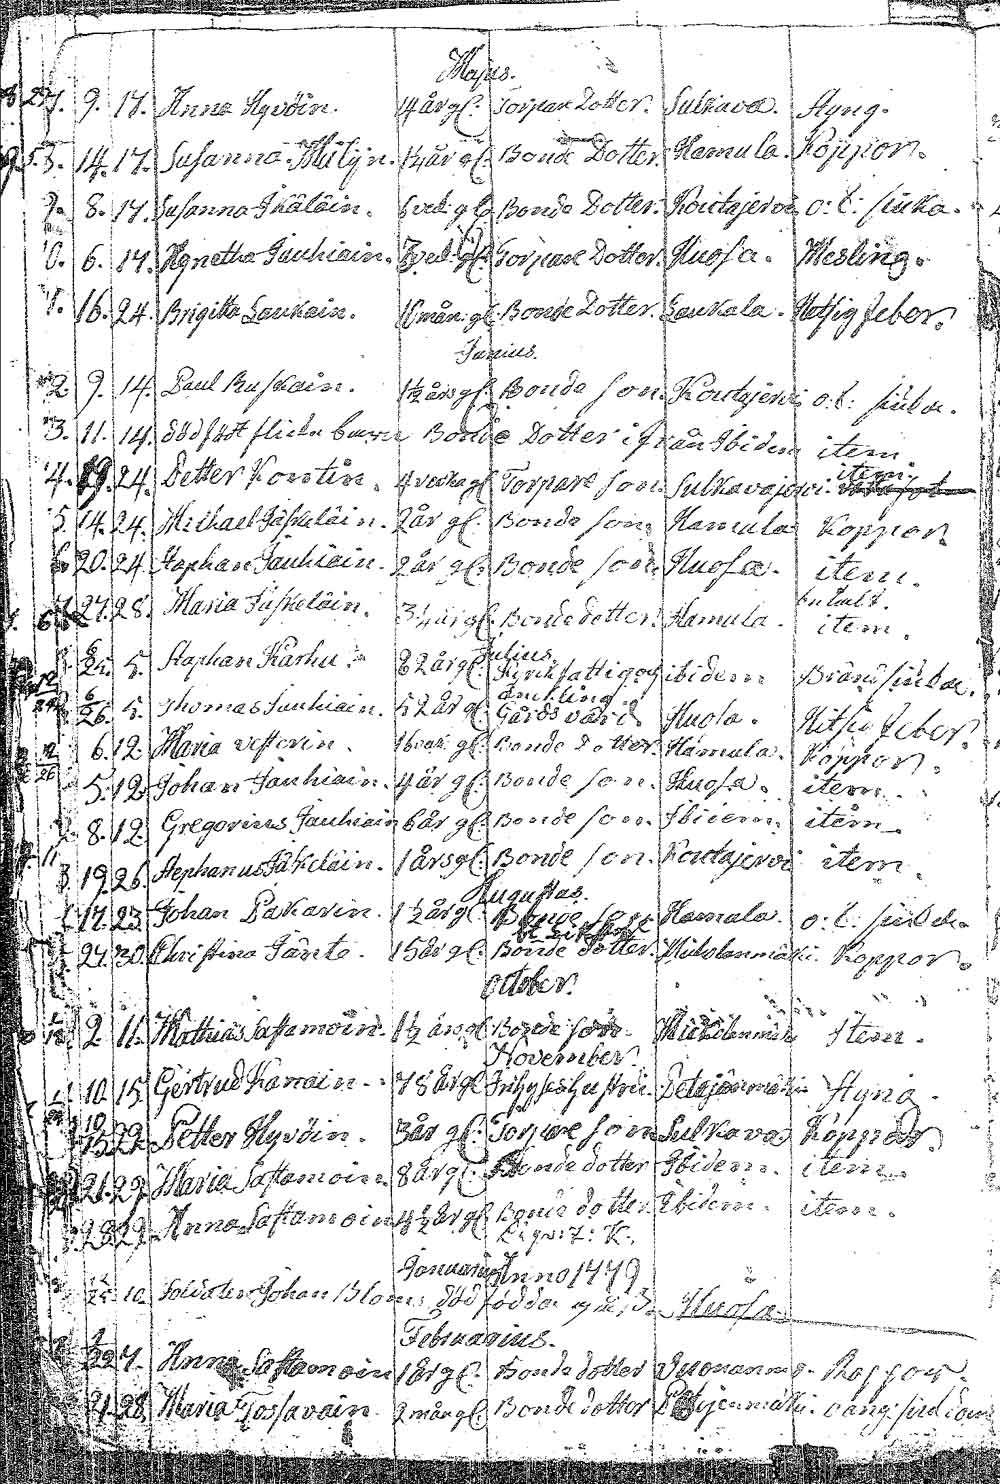 Majus.
9. 17. Anna Hyvöin. 14 år gl. Torpare Dotter. Sulkava. Styng.
14. 17. Susanna Miliin. 1¼ år gl. Bonde Dotter. Hamula. Koppor.
8. 17. Susanna Ikäläin. 6 vek: gl. Bonde Dotter. Koutajervi o: b: siuka.
6. 17. Agnetha Jauhiain. 3 vek: gl. Torpare Dotter. Huosa. Mesling.
16. 24. Brigitta Laukain. 16 mån: gl. Bonde Dotter. Laukala. Hetsig feber.
Junius.
9. 14. Paul Ruskain. 1½ års gl. Bonde son. Koutajervi o: b: siukd.
11. 14. dödfödt flicke barn Bonde Dotter ifrån Ibidem item.
19. 24. Petter Kontin. 4 veckag gl. Torpare son. Sulkavajervi. item.
14. 24. Michael Jäskeläin. 2 år gl. Bonde son. Hamula Koppor.
20. 24. Staphan Jauhiain. 2 år gl. Bonde son. Huosa. item.
27. 28. Maria Jäskeläin. 3¼ år gl. Bonde dotter. Hamula. betalt. item.
Julius.
6/25. 5. Staphan Karhu. 82 år gl. Kyrkfattig og ibidem Bränsiukd.
6/26. 5. Thomas Jauhiain. 52 år gl. änkling Gårds värd. Huosa. Hitsig feber.
6. 12. Maria Vesterin. 1 vek. gl. Bonde dotter. Hamula. Koppor.
5. 12. Johan Jauhiain. 4 år gl. Bonde son. Huosa. item.
8. 12. Gregorius Jauhiain 6 år gl. Bonde son. Ibidem. item.
19. 26. Stephanus Jäskeläin. 1 års gl. Bonde son. Koutajervi item.
Augustus.
17. 23. Johan Pakarin. 1½ år gl. Bonde son Hamala. o: b: siukd.
24. 30. Christina Jänte. 15 år gl. Bonde dotter. Koppor.
October.
2. 11. Mathias Sastamoin. 1½ års gl. Bonde son. Item.
November.
10. 15. Gertrud Kanain. 78 år gl. Styng.
15. 22. Petter Hyvöin. 3 år gl. Torpare son Sulkava. Koppor.
21. 29. Maria Sastamoin. 8 år gl. Bonde dotter Ibidem. item.
28. 29. Anna Sastamoin 4½ år gl. Bonde dotter. Ibidem. item.
Januarius Anno 1779
10. Soldaten Johan Blom: död födda Huosa
Februarius.
7. Anna Sastamoin 1 år gl. Bonde dotter Koppor.
21. 28. Maria Tossavain. 2 mån gl. Bonde dotter